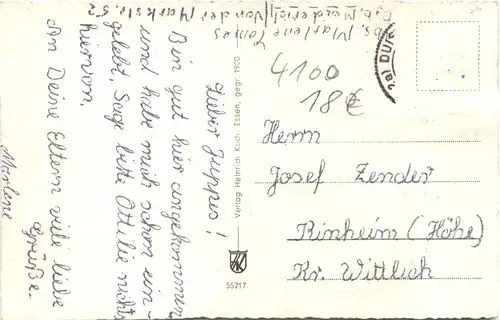 Lieber Juppes!
Bin gut hier angekommen
und habe mich schon ein-
gelebt. Sage bitte Ottilie nichts
hiervon.
An Deine Eltern viele liebe
Grüße.
Marlene
Abs. Marlene
von der Markstr. 52
4100
18€
Verlag Heinrich Koch, Essen, gegr. 1900
55217
Herrn
Josef Zender
Rinheim (Höhe)
Kr. Wittlich